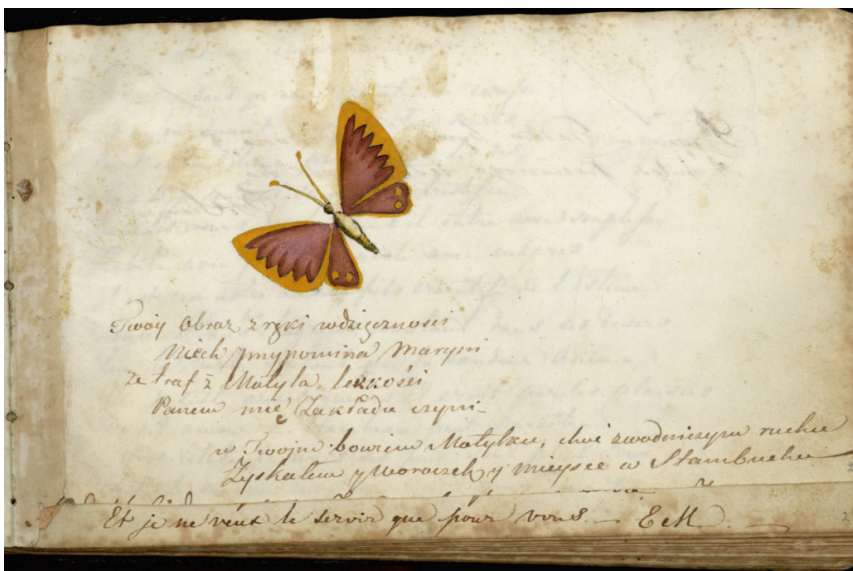 Twoy Obraz z ręki wdzięcznosci
Niech przypomina Maryni
że traf z Motyla lekkości
Panem mię Zakładu czyni
w Twoim bowiem Motylku, choć zwodniczym ruchu
Zyskałem y Woreczek y mieysce w Stambuchu
Et je ne veux le servir que pour vous. E M